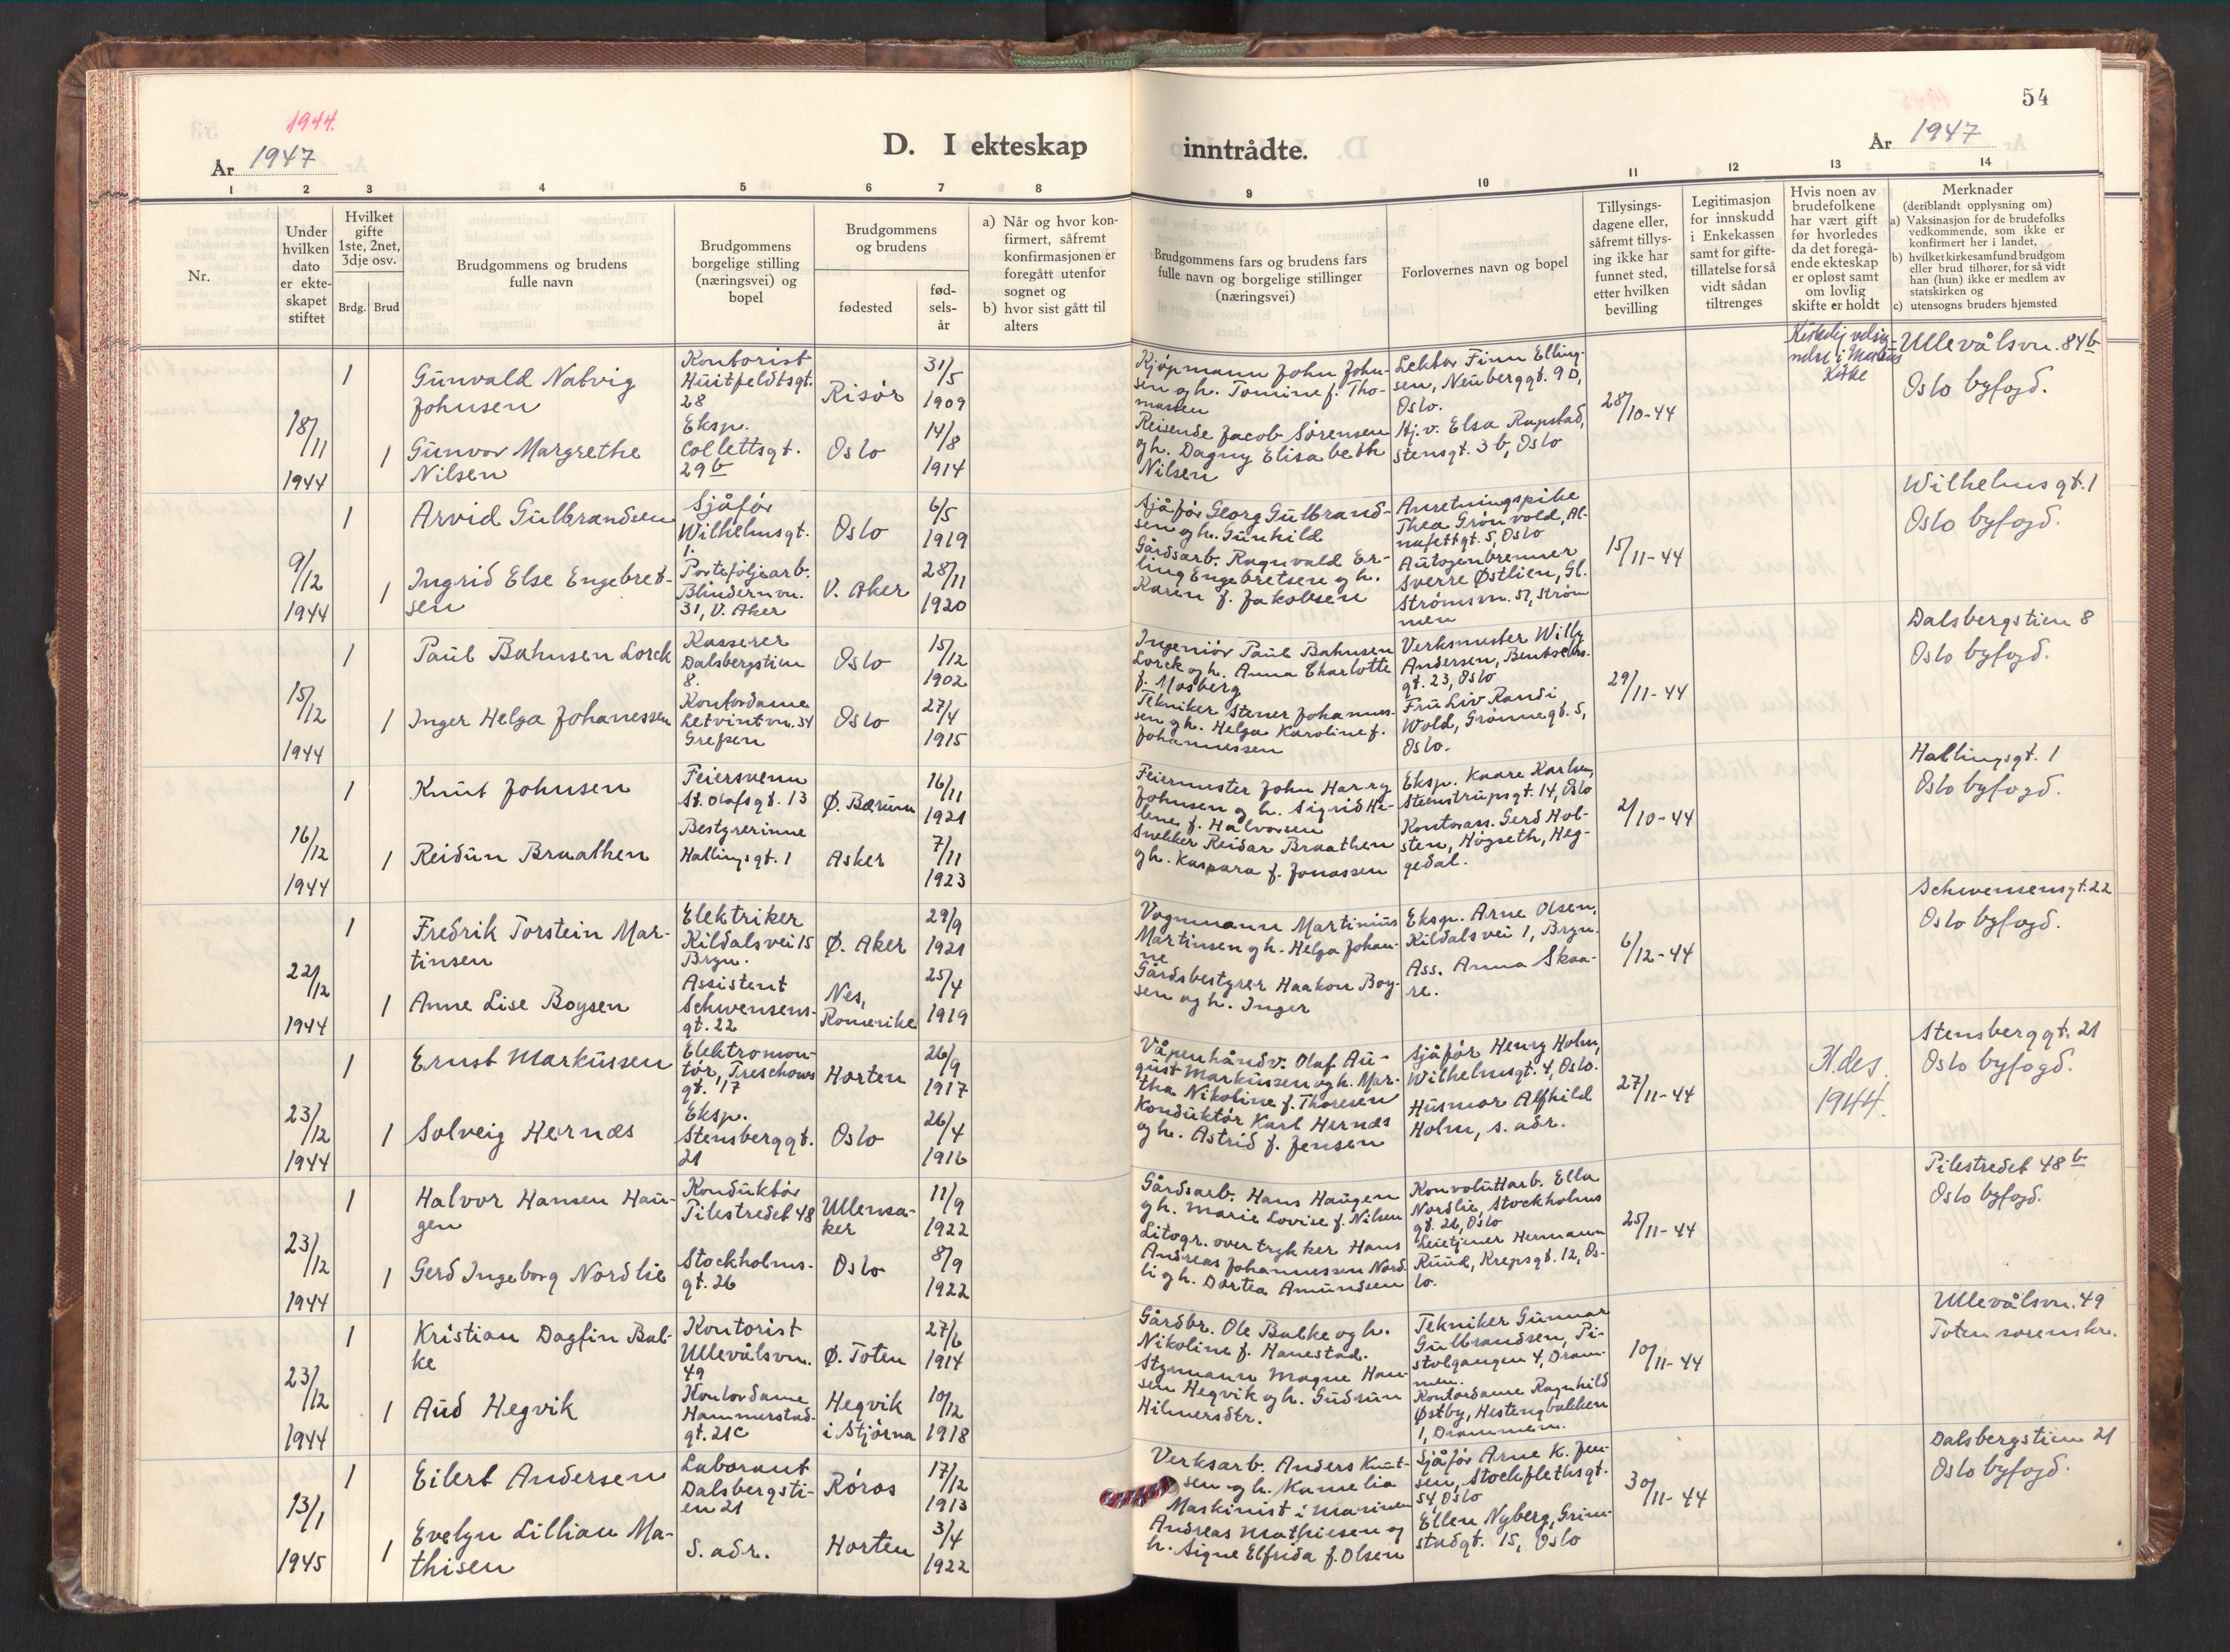 54
1944.
År 1947
D. I ekteskap inntrådte.
År 1947
1 2 3 4 5 6 7 8 9 10 11 12 13 14
Nr.
Under
hvilken
dato
er ekte-
skapet
stiftet
Hvilket
gifte
1ste, 2net,
3dje osv.
Brdg. Brud
Brudgommens og brudens
fulle navn
Brudgommens
borgelige stilling
(næringsvei) og
bopel
Brudgommens
og brudens
fødested
fød-
sels-
år
a) Når og hvor kon-
firmert, såfremt
konfirmasjonen er
foregått utenfor
sognet og
b) hvor sist gått til
alters
Brudgommens fars og brudens fars
fulle navn og borgelige stillinger
(næringsvei)
Forlovernes navn og bopel
Tillysings-
dagene eller,
såfremt tillys-
ing ikke har
funnet sted,
etter hvilken
bevilling
Legitimasjon
for innskudd
i Enkekassen
samt for gifte-
tillatelse for så
vidt sådan
tiltrenges
Hvis noen av
brudefolkene
har vært gift
før hvorledes
da det foregå-
ende ekteskap
er opløst samt
om lovlig
skifte er holdt
Merknader
(deriblandt opplysning om)
a) Vaksinasjon for de brudefolks
vedkommende, som ikke er
konfirmert her i landet,
b) hvilket kirkesamfund brudgom
eller brud tilhører, for så vidt
han (hun) ikke er medlem av
statskirken og
c) utensogns bruders hjemsted
18/11
1944
1
Gunvald Natvig
Johnsen
Kontorist
Huitfeldtsgt.
28
Risør
31/5
1909
1
Gunvor Margrethe
Nilsen
Eksp.
Collettsgt.
29b
Oslo
14/8
1914
Kjøpmann John John-
sen og h. Tomine f. Tho-
massen
Reisende Jacob Sørensen
og h. Dagny Elisabeth
Nilsen
Lektor Finn Elling-
sen, Neuberggt. 9D,
Oslo.
Hj.v. Elsa Rupstad,
Stensgt. 3b, Oslo
28/10-44
Kirkelig velsig-
nelse i Markus
Kirke
Ullevålsvn. 84b
Oslo byfogd.
9/12
1944
1
Arvid Gulbrandsen
Sjåfør
Wilhelmsgt.
1.
Oslo
6/5
1919
1
Ingrid Else Engebret-
sen
Porteføljearb.
Blindernvn.
31, V. Aker
V. Aker
28/11
1920
Sjåfør Georg Gulbrand-
sen og h. Gunhild
Gårdsarb. Ragnvald Er-
ling Engebretsen og h.
Karen f. Jakobsen
Anretningspike
Thea Grønvold, Al-
nafettgt. 5, Oslo
Autogenbrenner
Sverre Østlien, Gl.
Strømsvn. 57, Strøm
men
15/11-44
Wilhelmsgt. 1
Oslo byfogd.
15/12
1944
1
Paul Bahnsen Lorck
Kasserer
Dalsbergstien
8.
Oslo
15/12
1902
1
Inger Helga Johanessen
Kontordame
Letvintvn. 34
Grefsen
Oslo
27/4
1915
Ingeniør Paul Bahnsen
Lorck og h. Anna Charlotte
f. Mosberg
Tekniker Stener Johannes-
sen og h. Helga Karoline f.
Johannessen
Verksmester Willy
Andersen, Bentsebrs-
gt. 23, Oslo
Fru Liv Randi
Wold, Grønnegt. 5,
Oslo.
29/11-44
Dalsbergstien 8
Oslo byfogd.
16/12
1944
1
Knut Johnsen
Feiersvenn
St. Olafsgt. 13
Ø. Bærum
16/11
1921
1
Reidun Braathen
Bestyrerinne
Hallingsgt. 1
Asker
7/11
1923
Feiermester John Harry
Johnsen og h. Sigrid He-
lene f. Halvorsen
Snekker Reidar Braathen
og h. Kaspara f. Jonassen
Eksp. Kaare Karlsen,
Steenstrupsgt. 14, Oslo
Kontorass. Gerd Hol-
sten, Høgseth, Heg-
gedal.
2/10-44
Hallingsgt. 1
Oslo byfogd.
22/12
1944
1
Fredrik Torstein Mar-
tinsen
Elektriker
Kildalsvei 15
Bryn.
Ø. Aker
29/9
1921
1
Anne Lise Boysen
Assistent
Schwensens-
gt. 22
Nes,
Romerike
25/4
1919
Vognmann Martinius
Martinsen og h. Helga Johan-
ne
Gårdsbestyrer Haakon Boy-
sen og h. Inger
Eksp. Arne Olsen,
Kildalsvei 1, Bryn.
Ass. Anna Skaa-
re.
6/12-44
Schwensensgt. 22
Oslo byfogd.
23/12
1944
1
Ernst Markussen
Elektromon-
tør, Treschows
gt. 17
Horten
26/9
1917
1
Solveig Hernæs
Eksp.
Stensberggt.
21
Oslo
26/4
1916
Våpenhåndv. Olaf Au-
gust Markussen og h. Mar-
tha Nikoline f. Thoresen
Konduktør Karl Hernæs
og h. Astrid f. Jensen
Sjåfør Henry Holm,
Wilhelmsgt. 4, Oslo.
Husmor Alfhild
Holm, s. adr.
27/11-44
31. des.
1944.
Stensberggt. 21
Oslo byfogd.
23/12
1944
1
Halvor Hansen Hau-
gen
Konduktør
Pilestredet 48
Ullensa-
ker
11/9
1922
1
Gerd Ingeborg Nordlie
Stockholms-
gt. 26
Oslo
8/9
1922
Gårdsarb. Hans Haugen
og h. Marie Lovise f. Nilsen
Litogr. overtrykker Hans
Andreas Johannessen Nord-
li og h. Dortea Amundsen
Konvoluttarb. Ella
Nordlie, Stockholms
gt. 26, Oslo
Leietjener Hermann
Ruud, Krepsgt. 12, Os-
lo.
25/11-44
Pilestredet 48b
Oslo byfogd.
23/12
1944
1
Kristian Dagfin Bal-
ke
Kontorist
Ullevålsvn.
49
Ø. Toten
27/6
1914
1
Aud Hegvik
Kontordame
Hammerstad-
gt. 21C
Hegvik
i Stjørna
10/12
1918
Gårdbr. Ole Balke og h.
Nikoline f. Hanestad.
Styrmann Magne Han-
sen Hegvik og h. Gudrun
Hilmersdtr.
Tekniker Gunnar
Gulbrandsen, Pi-
stolgangen 4, Dram-
men.
Kontordame Ragnhild
Østby, Hestengbakken
1, Drammen.
10/11-44
Ullevålsvn. 49
Toten sorenskr.
13/1
1945
1
Eilert Andersen
Laborant
Dalsbergsti-
en 21
Røros
17/12
1913
1
Evelyn Lillian Ma-
thisen
S. adr.
Horten
3/4
1922
Verksarb. Anders Knut-
sen og h. Kamelia
Maskinist i Marinen
Andreas Mathiesen og
h. Signe Elfrida f. Olsen
Sjåfør Arne K. Jen-
sen, Stockflethsgt.
54, Oslo
Ellen Nyberg, Grim-
stadgt. 15, Oslo
30/11-44
Dalsbergstien 21
Oslo byfogd.